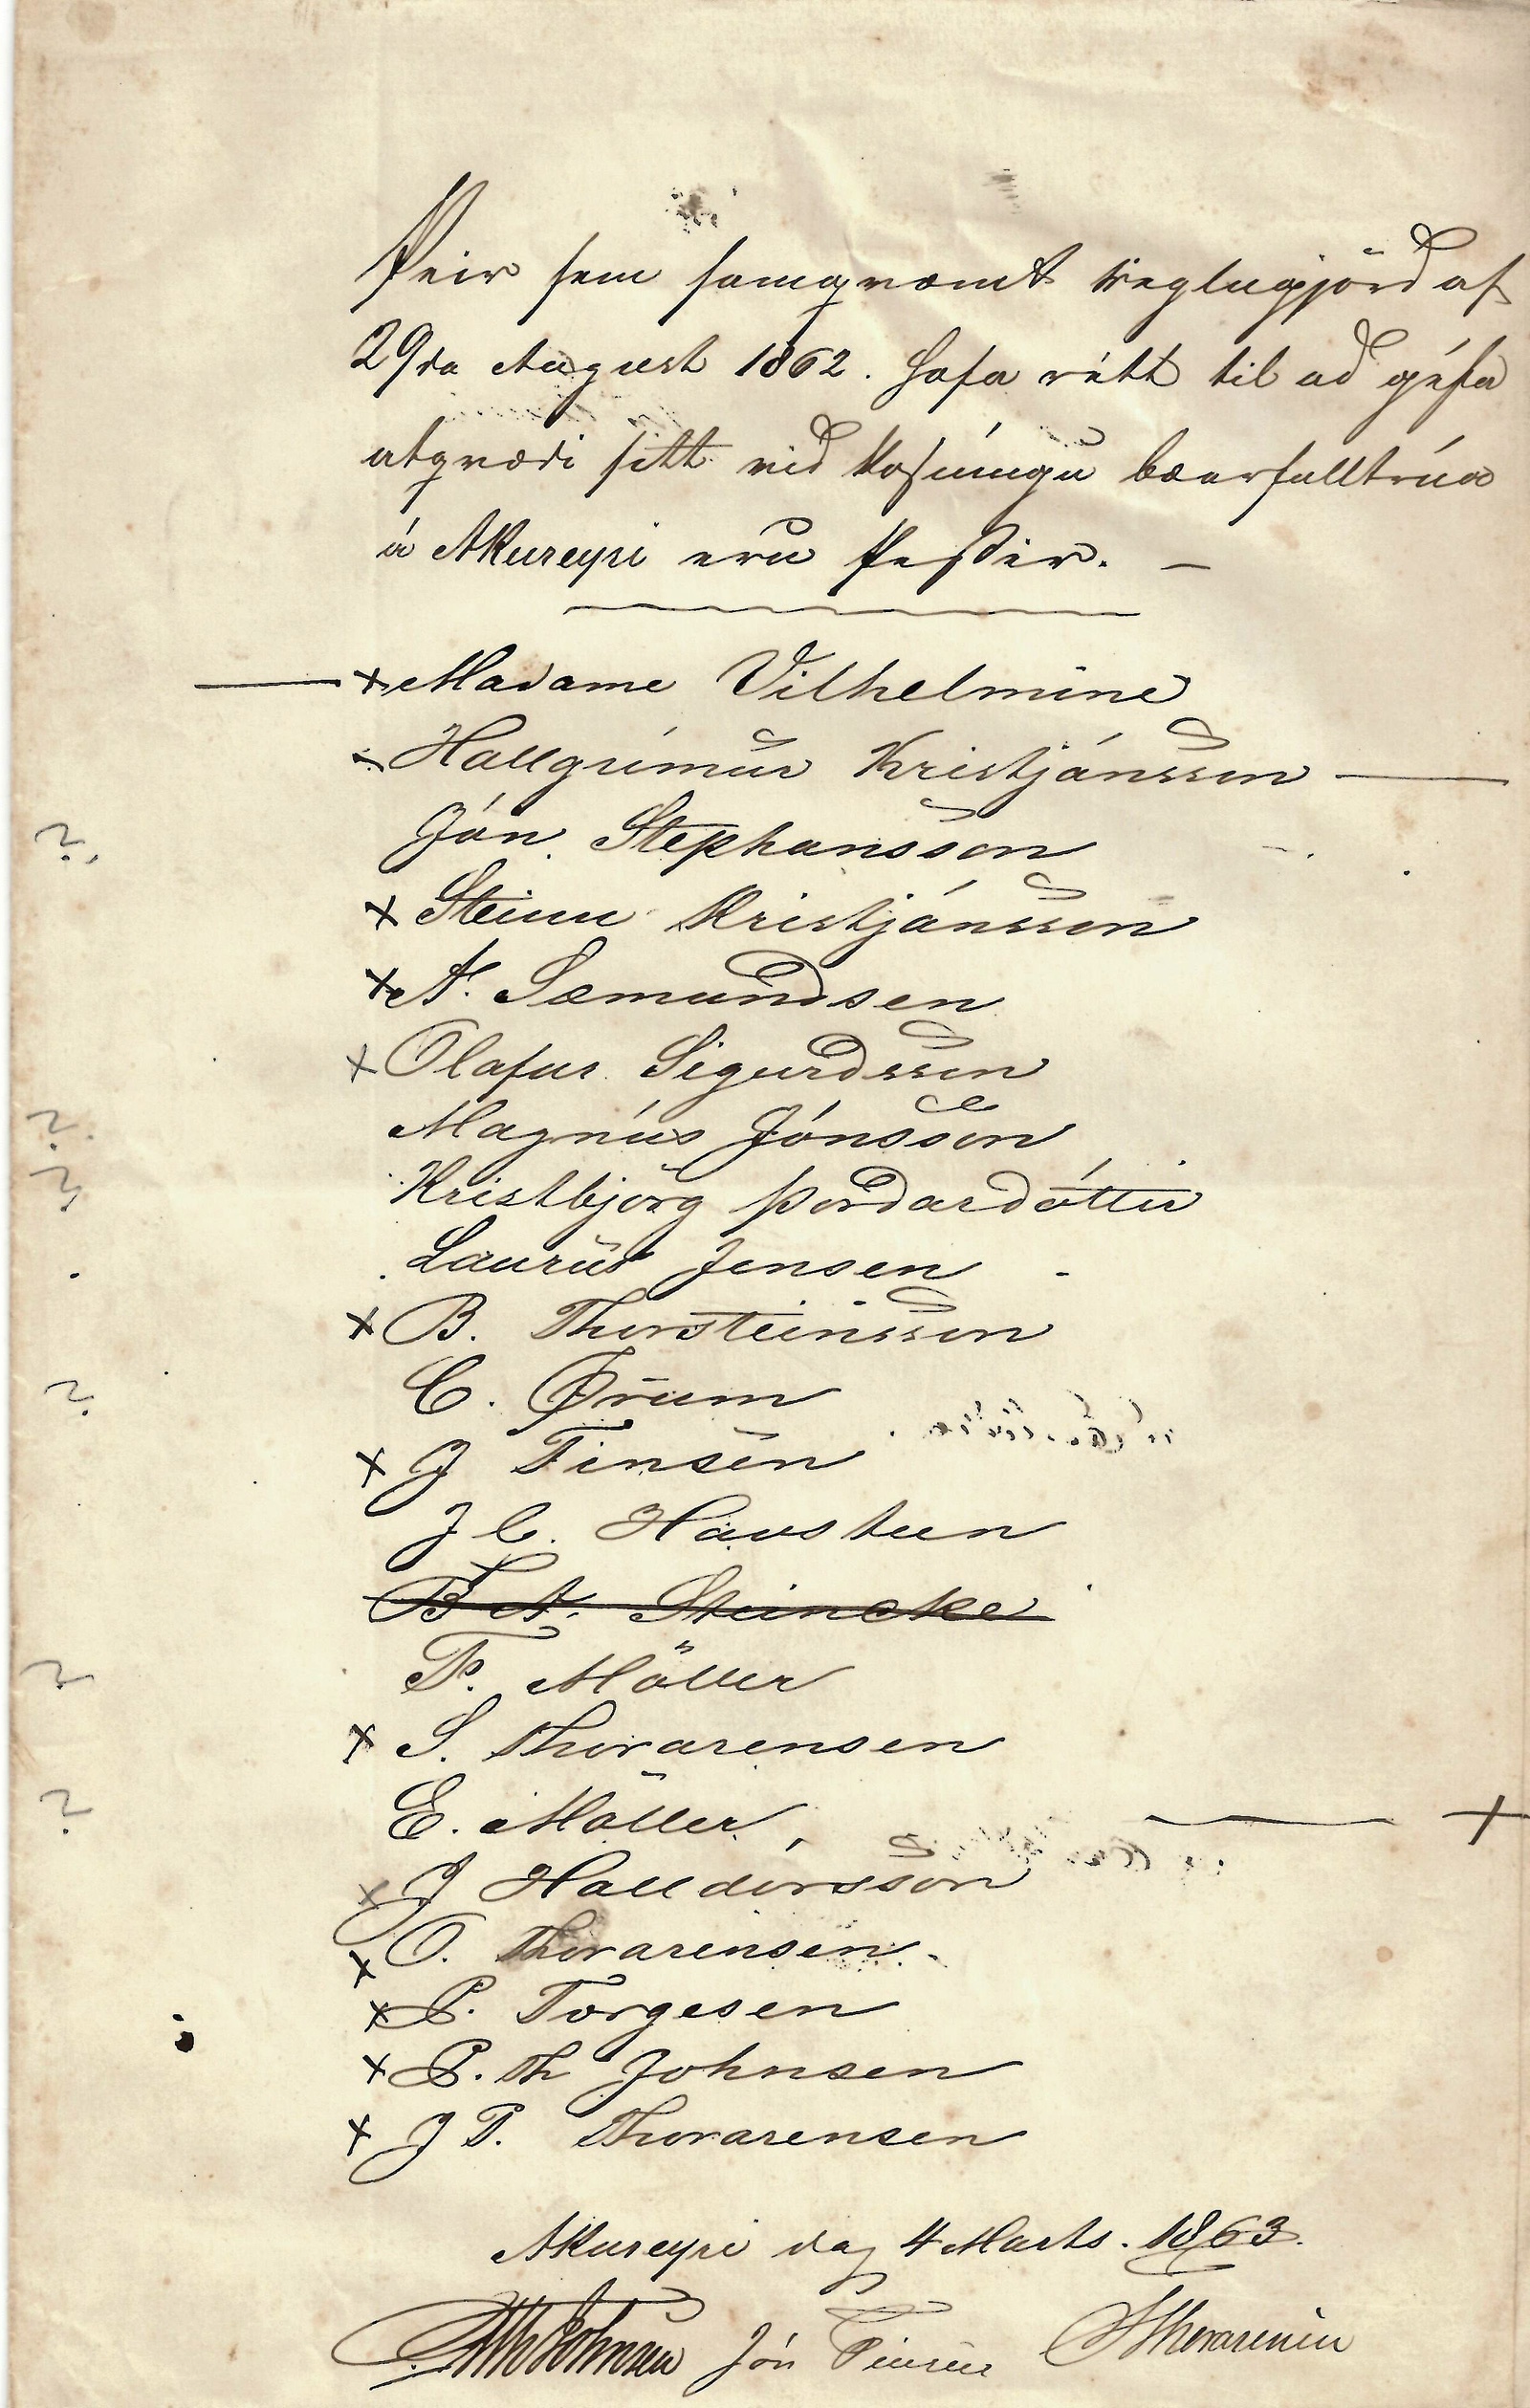 Þeir sem samqvæmt reglugjörd af
29da August 1862. hafa rétt til ad géfa
atqvædi sitt vid kosníngu bæarfulltrúa
á Akureyri eru þessir. —
— x Madame Vilhelmine
Hallgrímur Kristjánsson —
? Jón Stephansson
x Steinn Kristjánsson
x A. Sæmundsen
x Olafur Sigurdsson
? Magnús Jónsson
? Kristbjörg þordardóttir
Laurus Jensen -
x B. Thorsteinsson
? C. Ørum
x J Finsen
J C. Havsteen
B A. Steincke
? F. Möller
x S. Thorarensen
? E. Möller — +
x J Halldórsson
x O. Thorarensen
x P. Torgesen
x P. Th Johnsen
x J P. Thorarensen
Akureyri dag 4 Marts. 1863.
PThJohnsen Jón Finsen SThorarensen